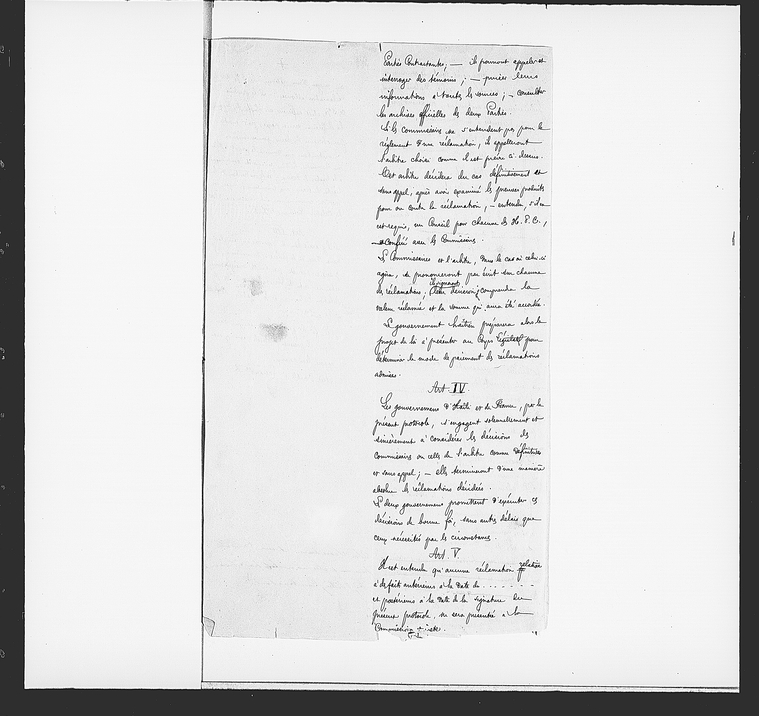 Parties Contractantes; — ils pourront appeler et
interroger des témoins; — puiser leurs
informations à toutes les sources; — consulter
les archives officielles des deux Parties.
Si les Commissaires ne s'entendent pas pour le
règlement d'une réclamation, ils appelleront
l'arbitre choisi comme il est prévu ci-dessus.
Cet arbitre décidera du cas définitivement et
sans appel, après avoir examiné les preuves produites
pour ou contre la réclamation, — entendu, s'il en
est requis, un Conseil pour chacune des H. P. C.,
et conféré avec les Commissaires.
Les Commissaires et l'arbitre, dans le cas où celui-ci
agira, se prononceront par écrit sur chacune
des réclamations; leur décision comprendra la
valeur réclamée et la somme qui aura été accordée.
Le gouvernement haïtien préparera alors le
projet de loi à présenter au Corps Législatif pour
déterminer le mode de paiement des réclamations
admises.
Art. IV.
Les gouvernements d'Haïti et de France, par le
présent protocole, s'engagent solennellement et
sincèrement à considérer les décisions des
commissaires ou celles de l'arbitre comme définitives
et sans appel; — elles termineront d'une manière
absolue les réclamations décidées.
Les deux gouvernements promettent d'exécuter ces
décisions de bonne foi, sans autres délais que
ceux nécessités par les circonstances.
Art. V.
Il est entendu qu'aucune réclamation relative
à des faits antérieurs à la date du . . . . . . .
et postérieurs à la date de la signature du
présent protocole, ne sera présentée à la
Commission mixte.